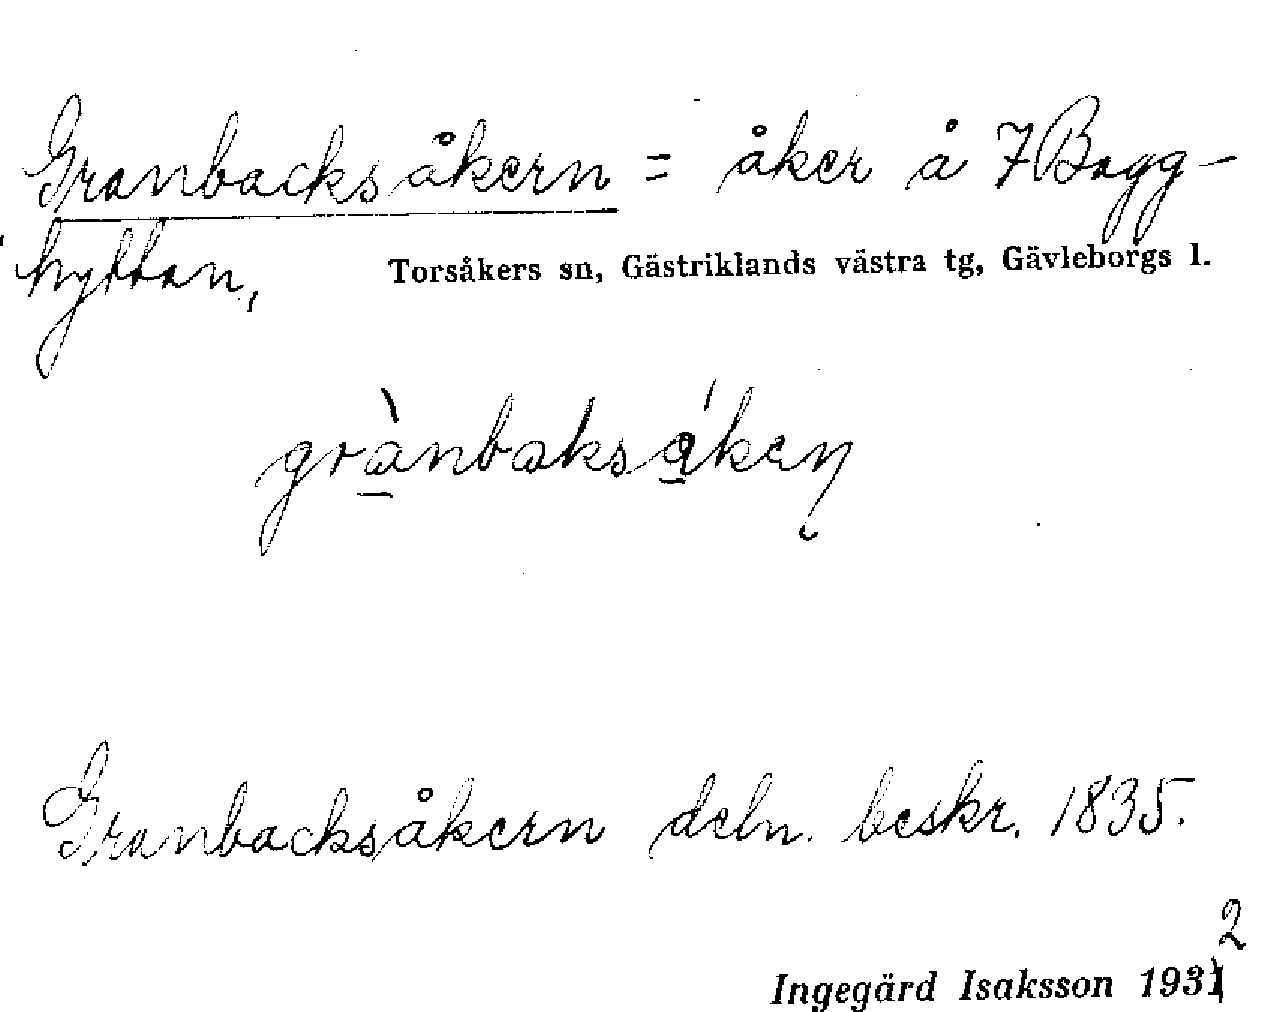 Granbacksåkern = åker å 7 Bagg-
hyttan, Torsåkers sn, Gästriklands västra tg, Gävleborgs l.
grànbaksá̲keņ
Granbacksåkern deln. beskr. 1835.
2
Ingegärd Isaksson 1931